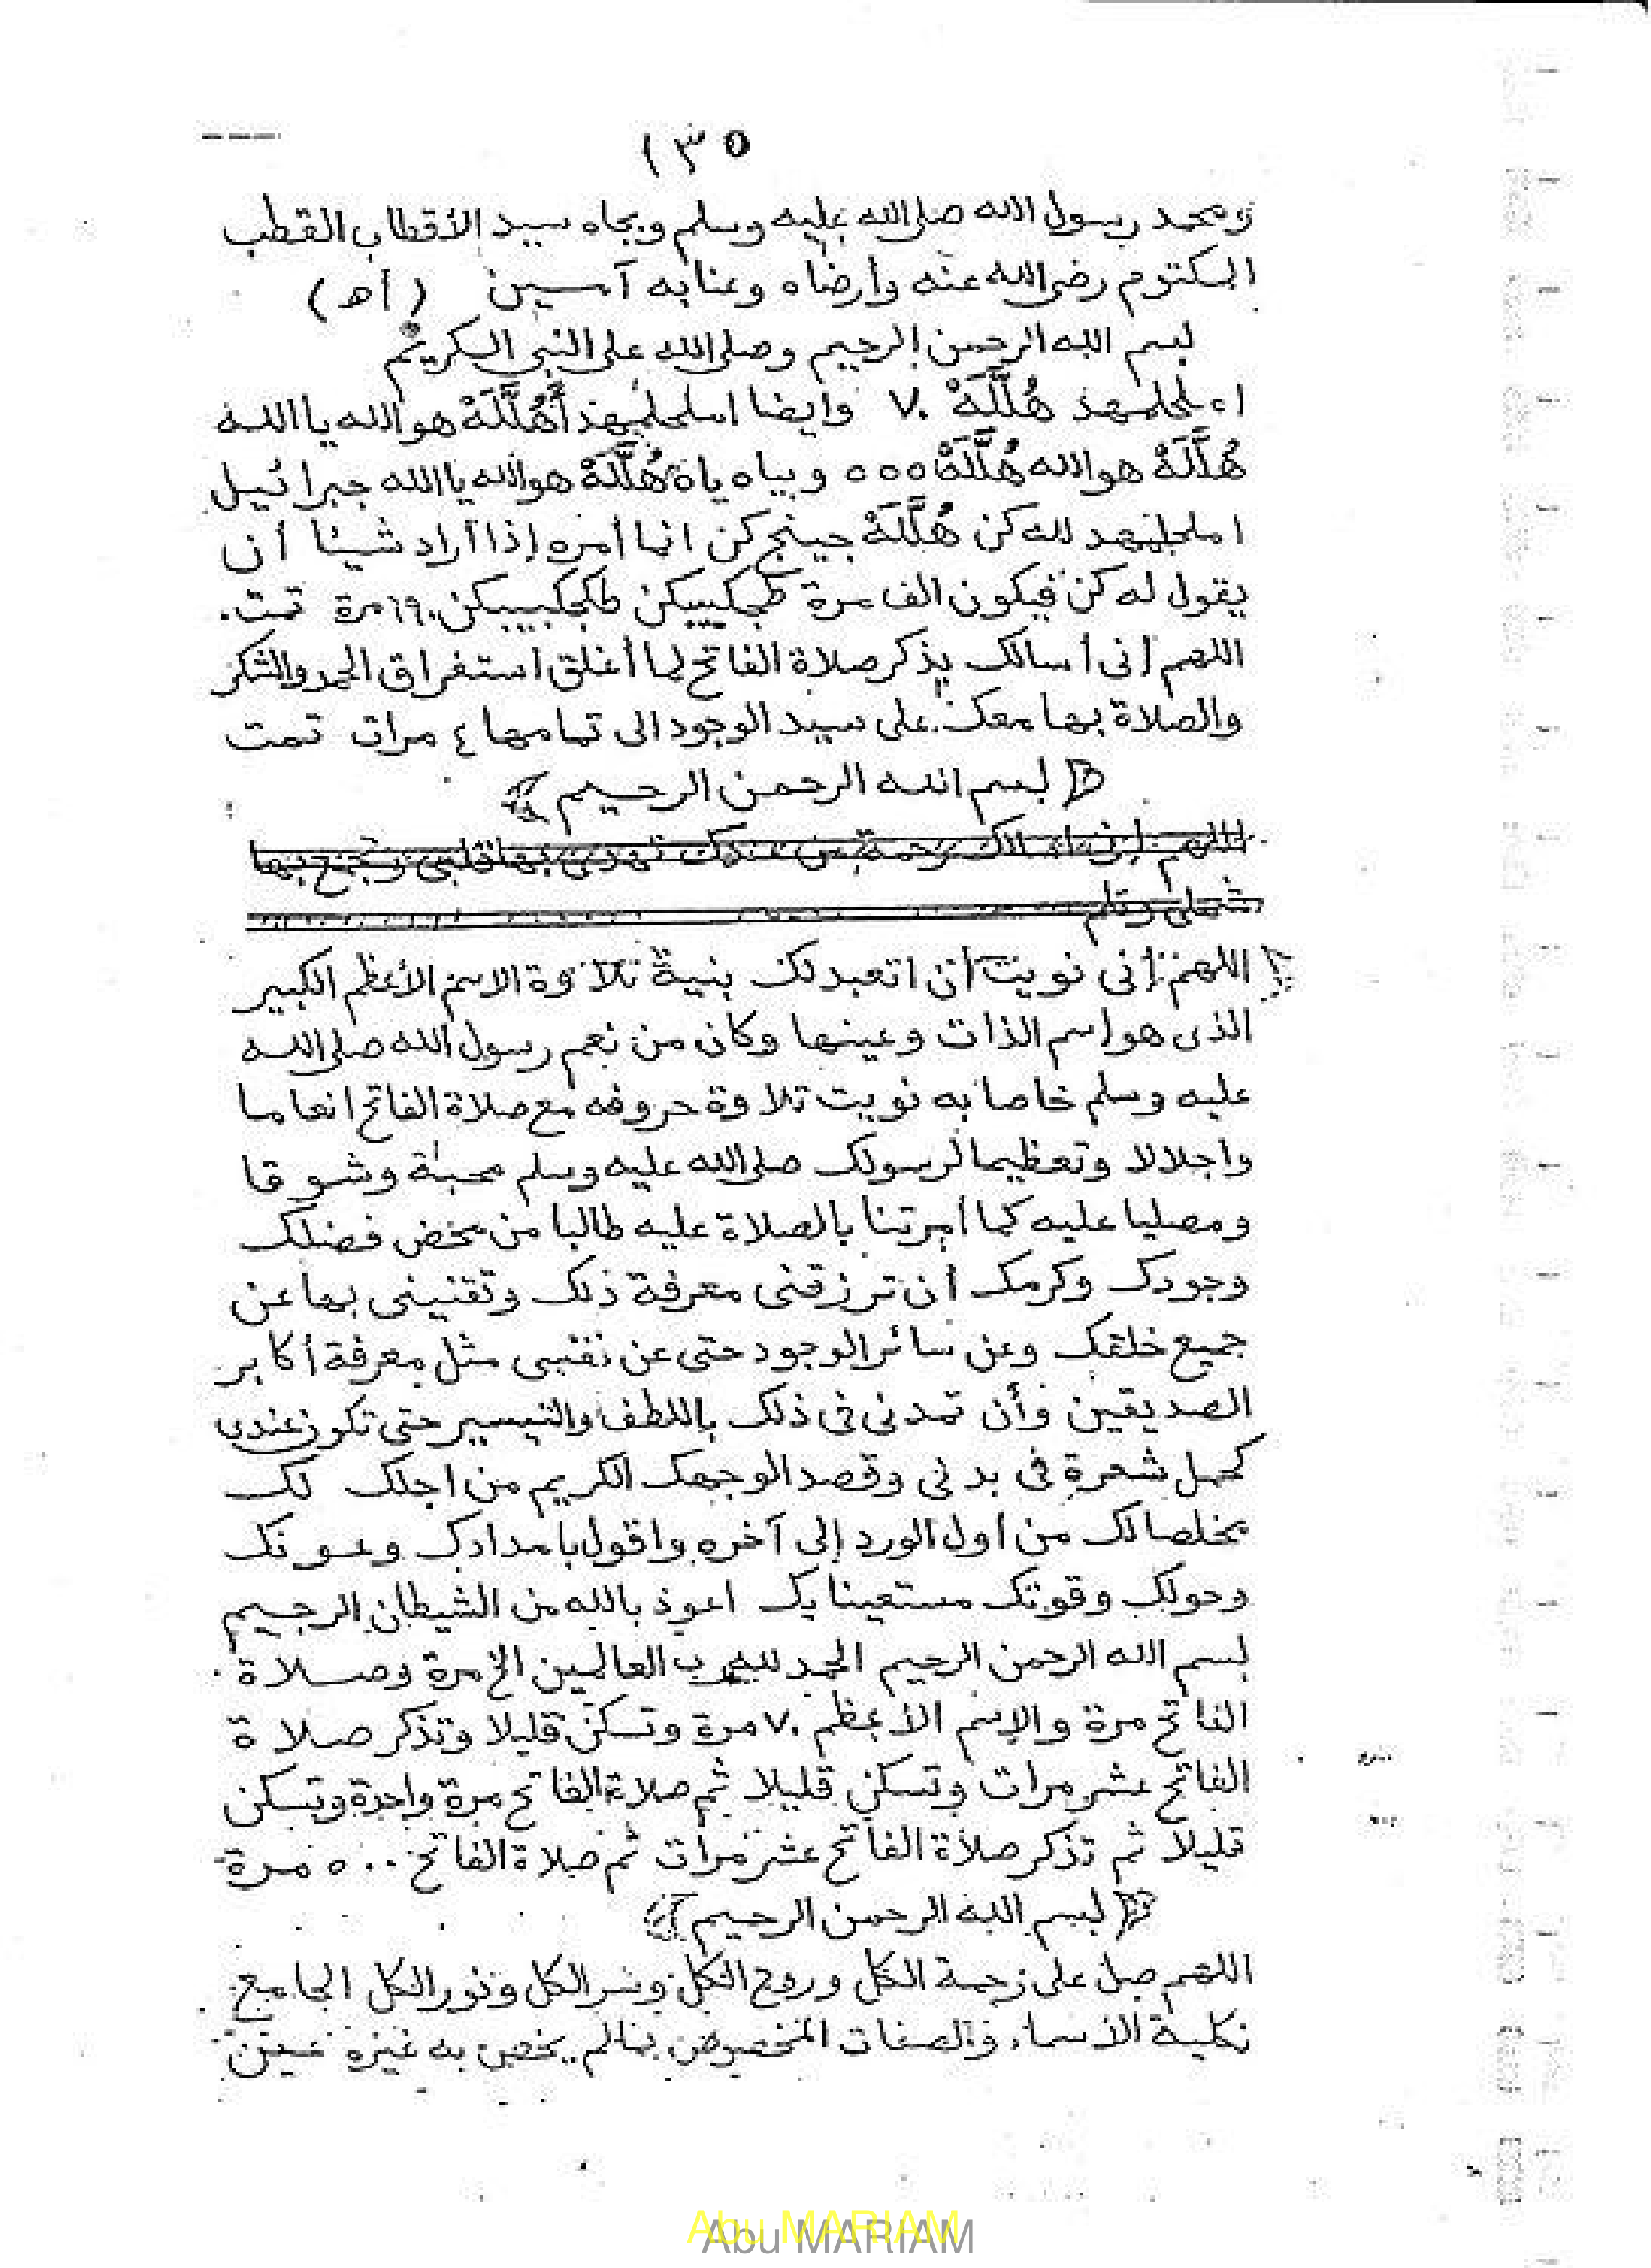 ١٣٥
ومحمد رسول الله صلى الله عليه وسلم وبجاه سيد الأقطاب القطب
المكتوم رضى الله عنه وأرضاه وعنابه آمين (أھ)
بسم الله الرحمن الرحيم وصلى الله على النبى الكريم
هُلَّلَهْ ٧٠ وايضا هو الله يا الله
هُلَّلَهْ هو الله هُلَّلَهْ ٥٥٥ هُلَّلَهْ هو الله يا الله جبرائيل
كن هُلَّلَهْ كن انما أمره إذا أراد شيئا أن
يقول له كن فيكون الف مرة مرة تمت.
اللهم إنى أسالك بذكر صلاة الفاتح لما أغلق استغراق الحمد والشكر
والصلاة بها معك على سيد الوجود الى تمامها ٤ مرات تمت
بسم الله الرحمن الرحيم
اللهم إنى اسالك رحمة من عندك تهدى بها قلبى وتجمع بها
شملى وتلم
اللهم إنى نويت أن اتعبد لك بنية تلاوة الاسم الأعظم الكبير
الذى هو اسم الذات وعينها وكان من نعم رسول الله صلى الله
عليه وسلم خاصا به نويت تلاوة حروفه مع صلاة الفاتح انعاما
واجلالا وتعظيما لرسولك صلى الله عليه وسلم محبة وشوقا
ومصليا عليه كما أمرتنا بالصلاة عليه طالبا من محض فضلك
وجودك وكرمك أن ترزقنى معرفة ذلك وتفنينى بها عن
جميع خلقك وعن سائر الوجود حتى عن نفسى مثل معرفة أكابر
الصديقين وأن تمدنى فى ذلك باللطف والتيسير حتى تكون عندى
كحمل شعرة فى بدنى وقصد الوجهك الكريم من اجلك لك
مخلصا لك من أول الورد إلى آخره واقول بامدادك وعونك
وحولك وقوتك مستعينا بك اعوذ بالله من الشيطان الرجيم
بسم الله الرحمن الرحيم الحمد لله رب العالمين الخ مرة وصلاة
الفاتح مرة والإسم الأعظم ٧٠ مرة وتسكن قليلا وتذكر صلاة
الفاتح عشر مرات وتسكن قليلا ثم صلاة الفاتح مرة واحدة وتسكن
قليلا ثم تذكر صلاة الفاتح عشر مرات ثم صلاة الفاتح ٥٠٠ مرة
بسم الله الرحمن الرحيم
اللهم صل على رحمة الكل وروح الكل وسر الكل ونور الكل الجامع
لكلية الأسماء والصفات المخصوص بمالم يختص به غيره عين
Abu MARIAM
Abu MARIAM